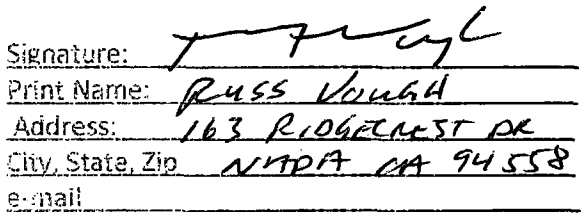 Signature:
Print Name: RUSS VOUGH
Address: 163 RIDGECREST DR
City, State, Zip NAPA CA 94558
e-mail